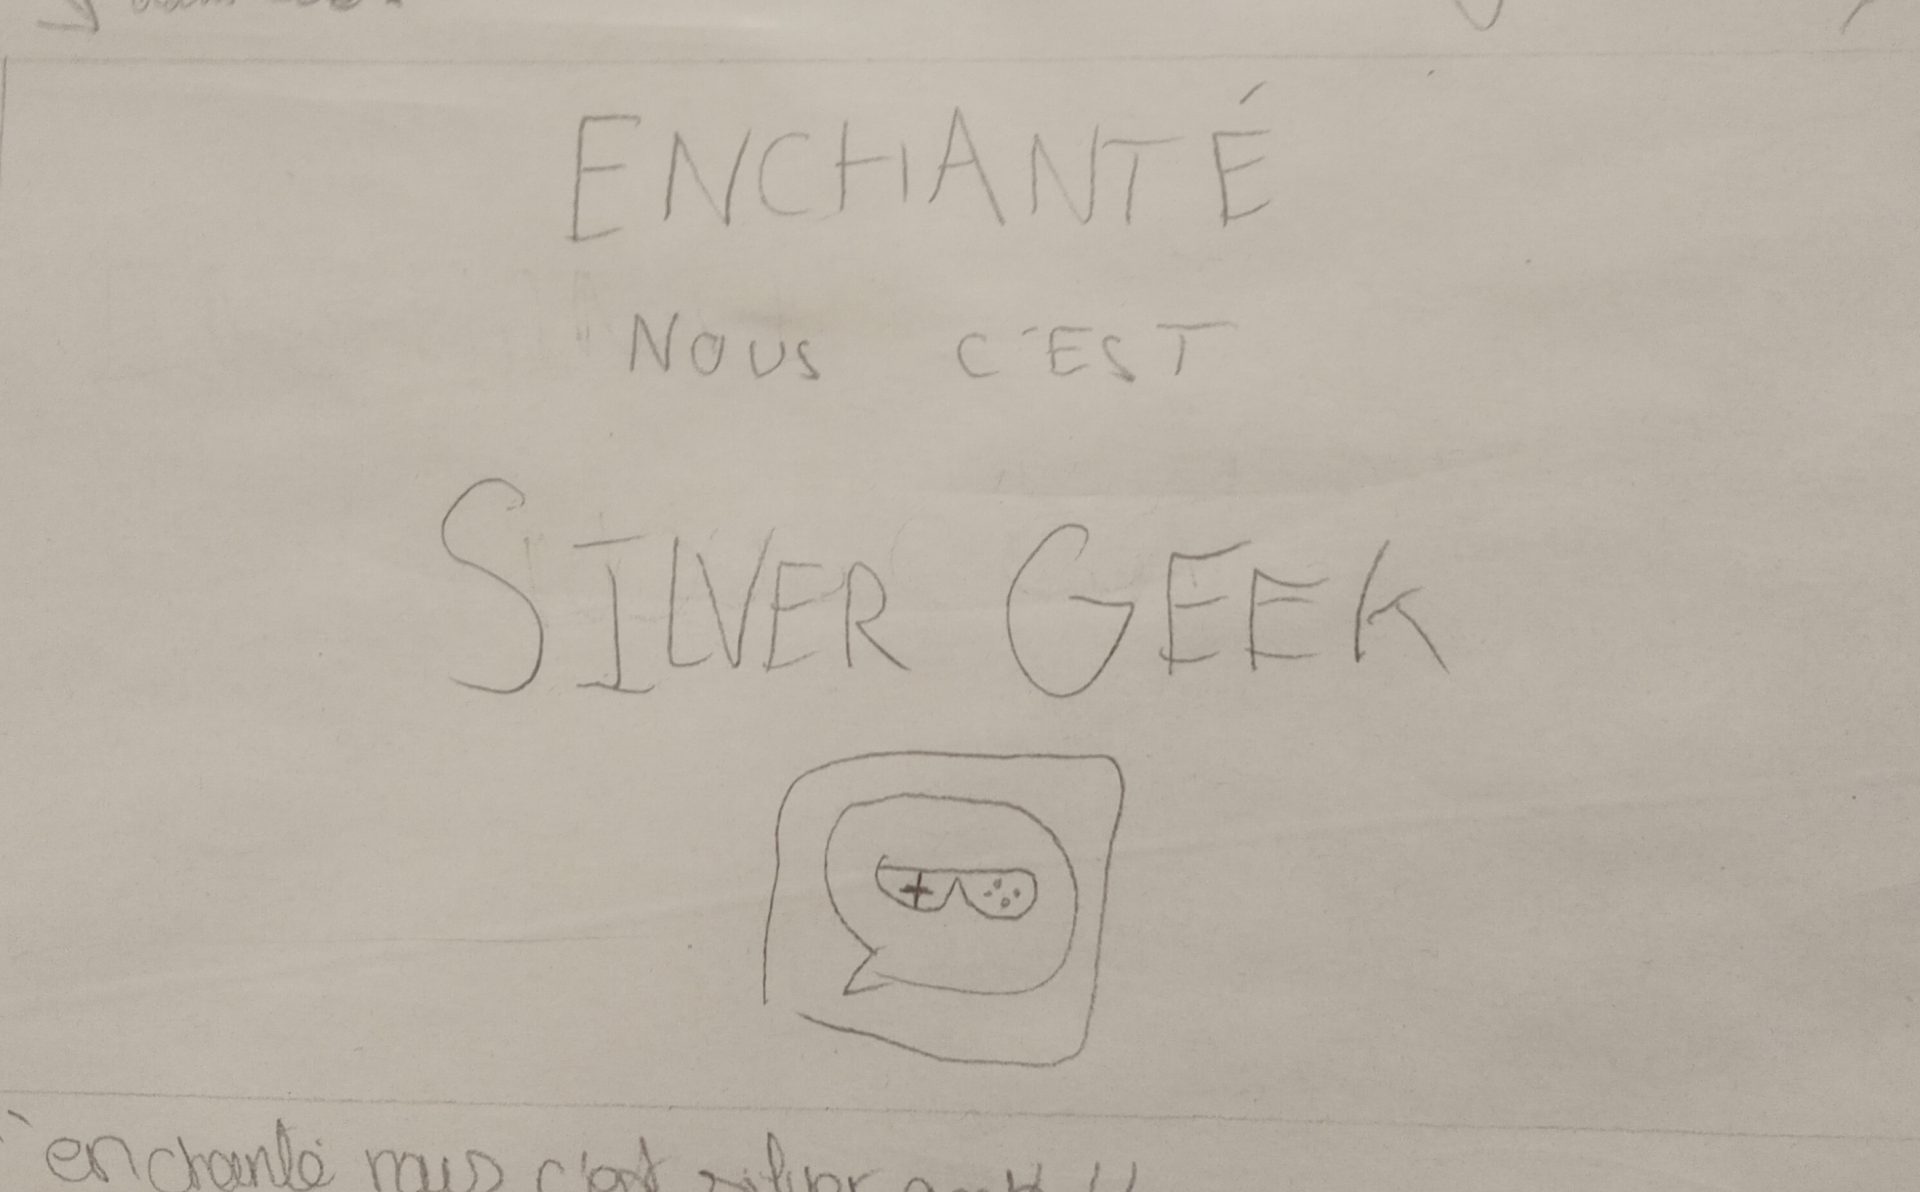 ENCHANTÉ
NOUS C'EST
SILVER GEEK
enchanté nous c'est silver geek !!